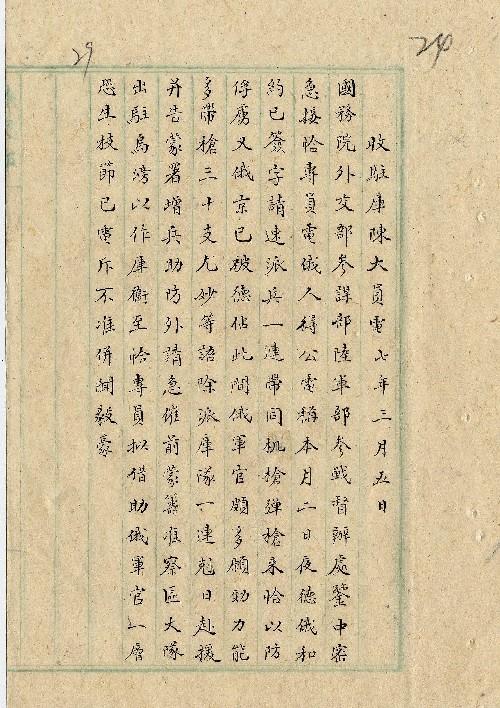 29
240
收駐庫陳大員電七年三月五日
國務院外交部參謀部陸軍部參戰督辦處鑒中密
急接恰專員電俄人得公電稱本月二日夜德俄和
約已簽字請速派兵一連帶同机槍彈槍來恰以防
俘虜又俄京已破德佔此間俄軍官頗多願効力能
多帶槍三十支尤妙等語除派庫隊一連剋日赴援
并告蒙署增兵助防外請急催前蒙籌准察區大隊
出駐烏滂以作庫衛至恰專員拟借助俄軍官一層
恐生枝節已電斥不准併聞毅豪